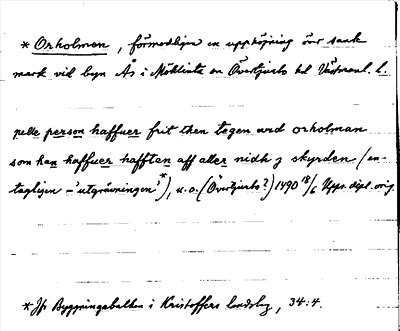 * Orholmen, förmodligen en upphöjning över sank
mark vid byn Ås i Möklinta sn Övertjurbo hd Västmanl. l.
pelle person haffuer frit then tegen wid orholman
som han haffuer hafftan aff alter nidh j skyrden (an-
tagligen = 'utgrävningen'*), u.o. (Övertjurbo?) 1490 18/6 Upps. dipl. orig.
* Jfr Byggningabalken i Kristoffers landslag, 34:4.